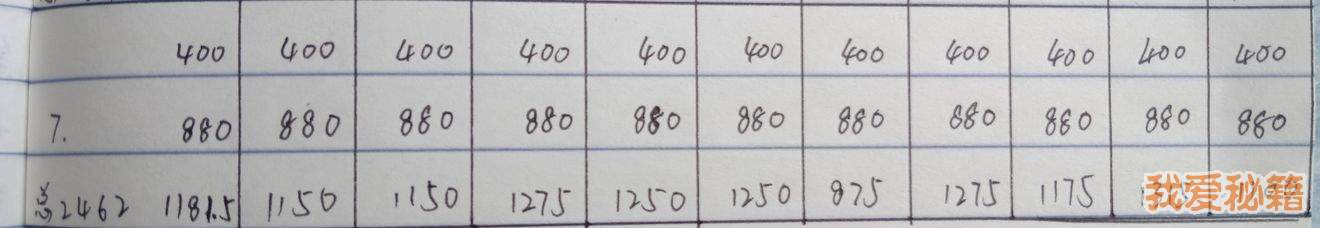 400 400 400 400 400 400 400 400 400 400 400
7. 880 880 880 880 880 880 880 880 880 880 880
总2462 1181.5 1150 1150 1275 1250 1250 875 1275 1175
我爱秘籍